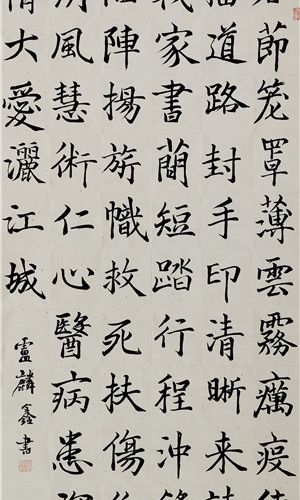 節籠罩薄雲霧癘疫
道路封手印清晰来
家書蕳短踏行程沖
陣揚旂幟救死扶傷
風慧術仁心醫病患
情大愛灑江城
盧麟鑫書